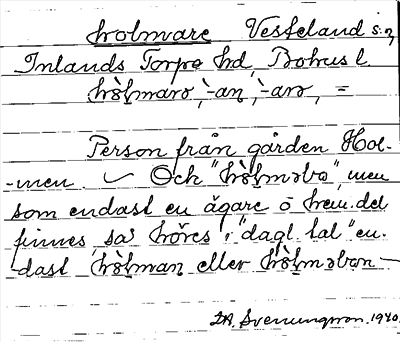 holmare Vesteland s:n
Inlands Torpe hd, Bohus l.
hòlmarə, -an, -arə, =
Person från gården Hol-
-men. ~ Och "hòlməbo", men
som endast en ägare ö hem.det
finnes, så höres i "dagl. tal" en-
dast hòlman eller hòlməbon —
D.A. Svenungsson. 1940.